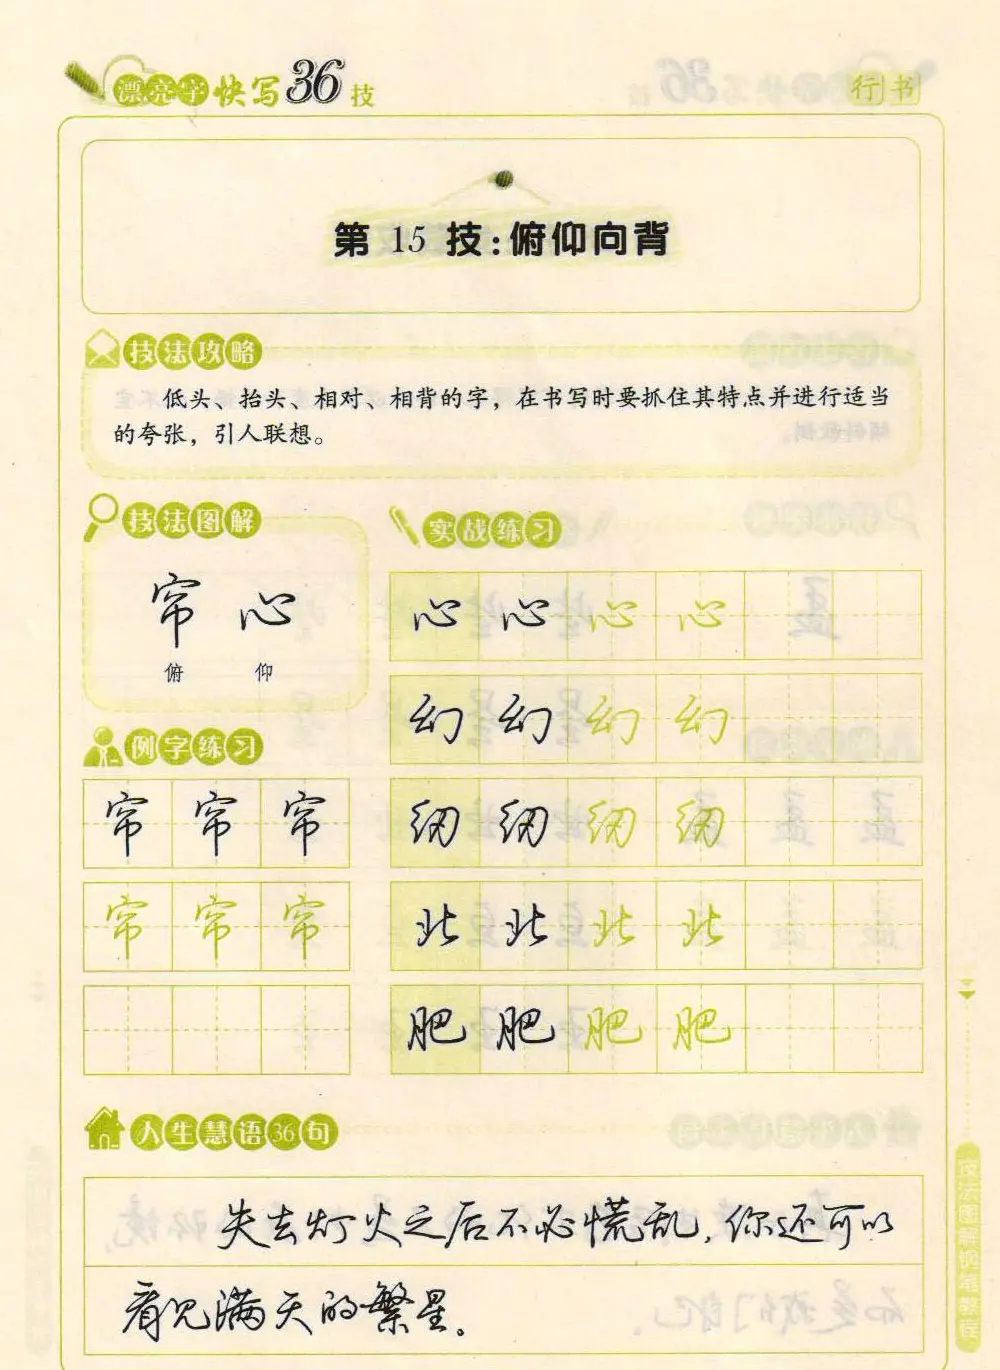 漂亮字快写36技
行书
第 15 技:俯仰向背
技法攻略
低头、抬头、相对、相背的字，在书写时要抓住其特点并进行适当
的夸张，引人联想。
技法图解
帘 心
俯 仰
例字练习
帘 帘 帘
帘 帘 帘
实战练习
心 心 心 心
幻 幻 幻 幻
北 北 北 北
肥 肥 肥 肥
人生慧语36句
失去灯火之后不必慌乱，你还可以
看见满天的繁星。
技法图解钢笔教程